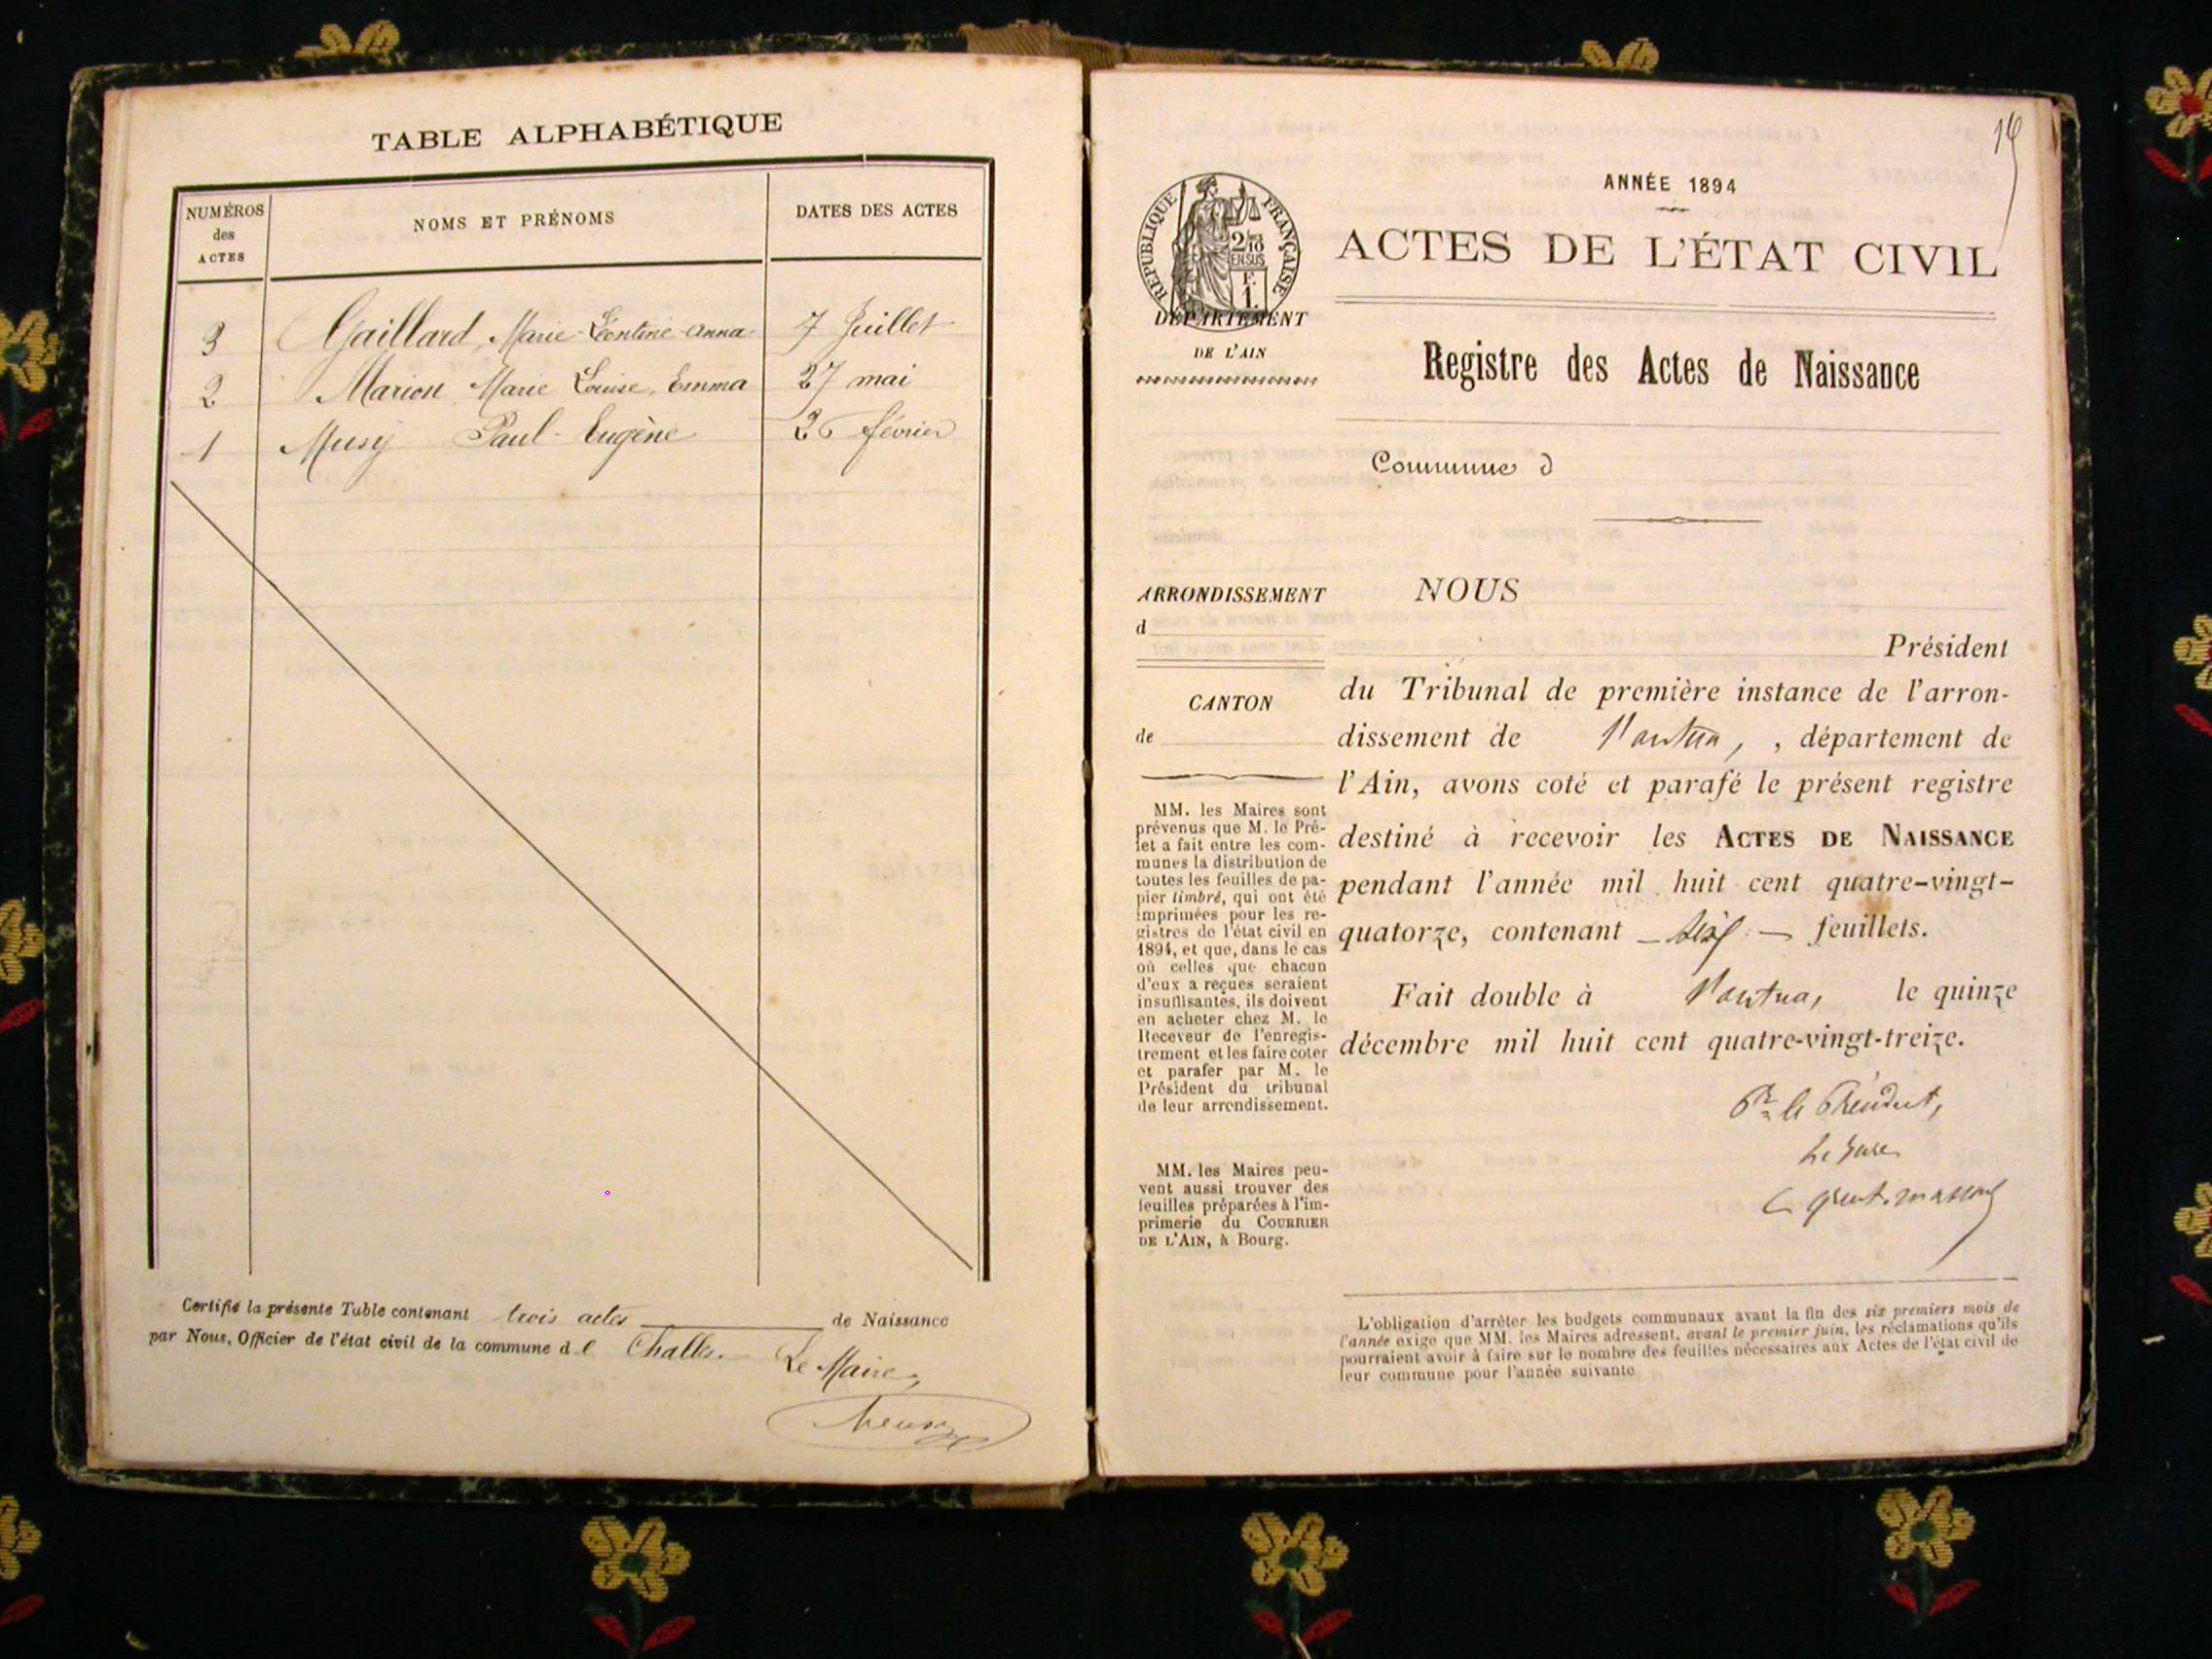 TABLE ALPHABÉTIQUE
NUMÉROS
des
ACTES
NOMS ET PRÉNOMS
DATES DES ACTES
3 Gaillard, Marie-Léontine-Anna 7 Juillet
2 Marion Marie Louise, Emma 27 mai
1 Musy Paul-Eugène 26 février
Certifié la présente Table contenant trois actes de Naissance
par Nous, Officier de l'état civil de la commune de Challes.
Le Maire,
19
RÉPUBLIQUE FRANÇAISE
2/10
EN SUS
F.
1.
ANNÉE 1894
ACTES DE L'ÉTAT CIVIL
DÉPARTEMENT
DE L'AIN
Registre des Actes de Naissance
Commune d
ARRONDISSEMENT
d
CANTON
de
MM. les Maires sont
prévenus que M. le Pré-
fet a fait entre les com-
munes la distribution de
toutes les feuilles de pa-
pier timbré, qui ont été
imprimées pour les re-
gistres de l'état civil en
1894, et que, dans le cas
où celles que chacun
d'eux a reçues seraient
insuffisantes, ils doivent
en acheter chez M. le
Receveur de l'enregis-
trement et les faire coter
et parafer par M. le
Président du tribunal
de leur arrondissement.
MM. les Maires peu-
vent aussi trouver des
feuilles préparées à l'im-
primerie du COURRIER
DE L'AIN, à Bourg.
NOUS
Président
du Tribunal de première instance de l'arron-
dissement de Nantua, , département de
l'Ain, avons coté et parafé le présent registre
destiné à recevoir les ACTES DE NAISSANCE
pendant l'année mil huit cent quatre-vingt-
quatorze, contenant feuillets.
Fait double à Nantua, le quinze
décembre mil huit cent quatre-vingt-treize.
Pr le Président,
Le Juge
L'obligation d'arrêter les budgets communaux avant la fin des six premiers mois de
l'année exige que MM. les Maires adressent, avant le premier juin, les réclamations qu'ils
pourraient avoir à faire sur le nombre des feuilles nécessaires aux Actes de l'état civil de
leur commune pour l'année suivante